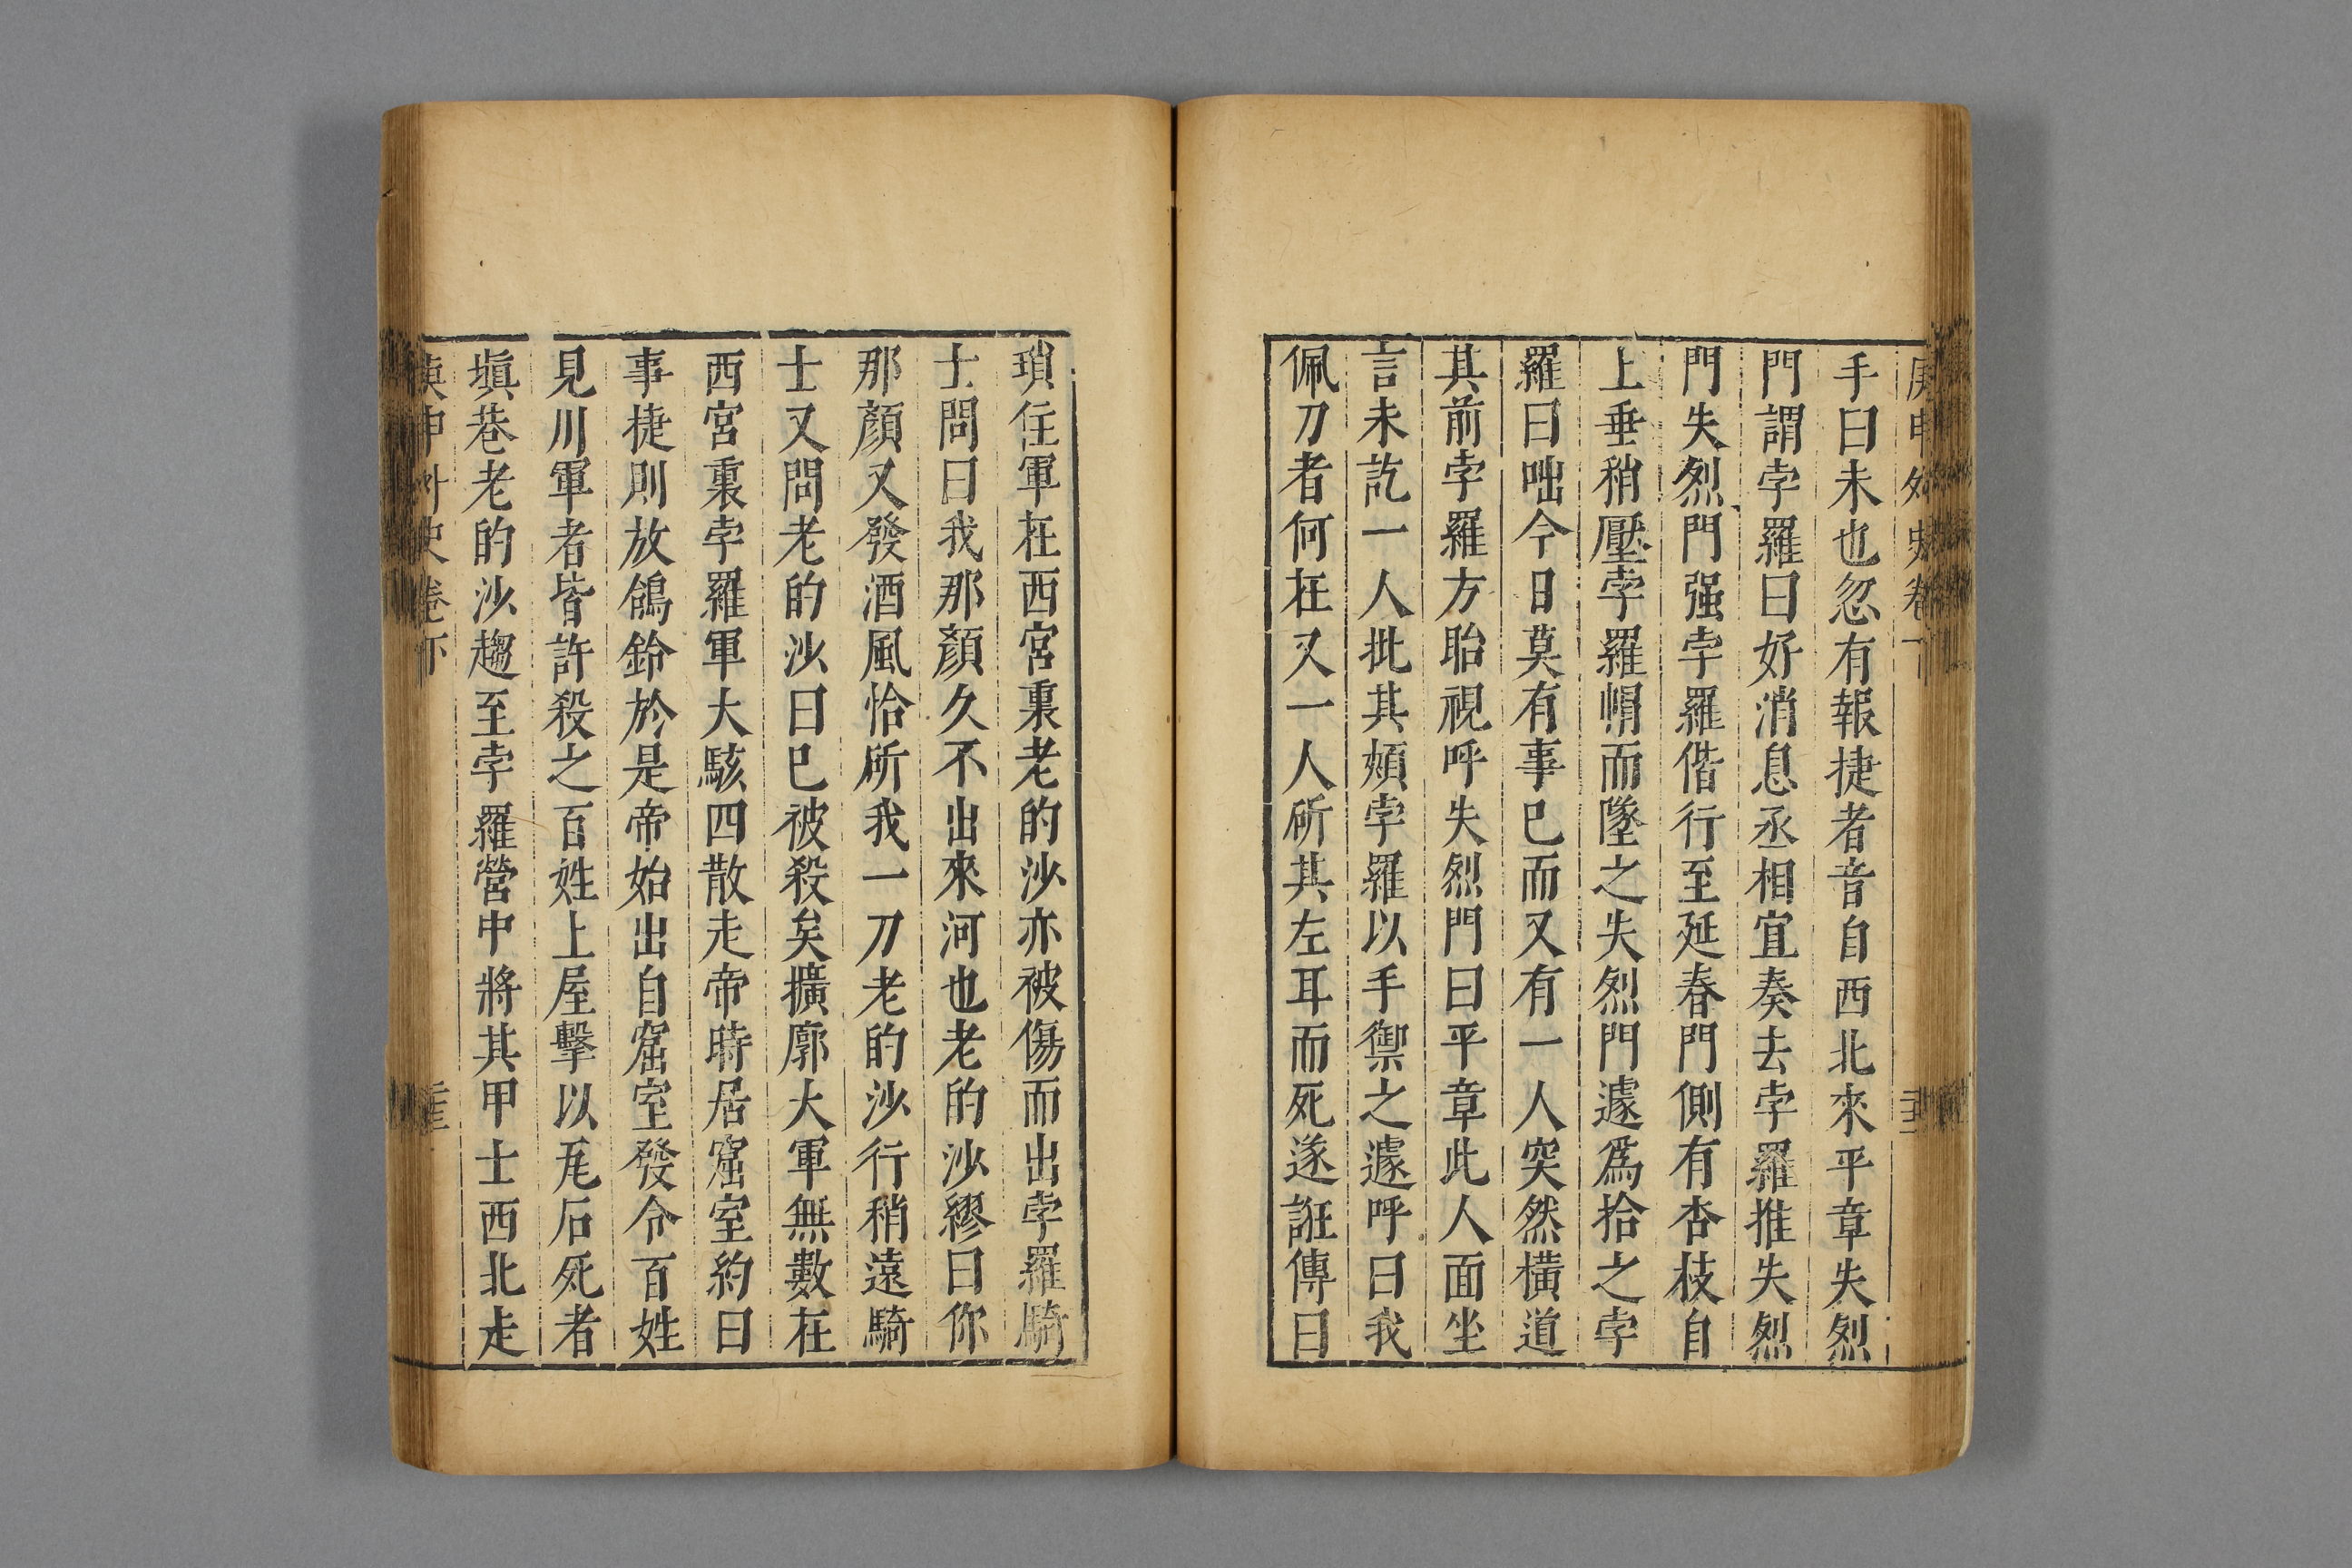 庚申外史卷下
手曰未也忽有報捷者音自西北來平章失烈
門謂孛羅曰好消息丞相宜奏去孛羅推失烈
門失烈門强孛羅偕行至延春門側有杏枝自
上垂稍壓孛羅㡌而墜之失烈門遽爲拾之孛
羅曰咄今日莫有事已而又有一人突然橫道
其前孛羅方眙視呼失烈門曰平章此人面坐
言未訖一人批其頰孛羅以手禦之遽呼曰我
佩刀者何在又一人斫其左耳而死遂誑傳曰
瑣住軍在西宮裏老的沙亦被傷而出孛羅騎
士問曰我那顔久不出來河也老的沙繆曰你
那顔又發酒風恰斫我一刀老的沙行稍遠騎
士又問老的沙曰已被殺矣擴廓大軍無數在
西宮裏孛羅軍大駭四散走帝時居窟室約曰
事捷則放鴿鈴於是帝始出自窟室發令百姓
見川軍者皆許殺之百姓上屋擊以瓦石死者
塡巷老的沙趨至孛羅營中將其甲士西北走
庚申外史卷下